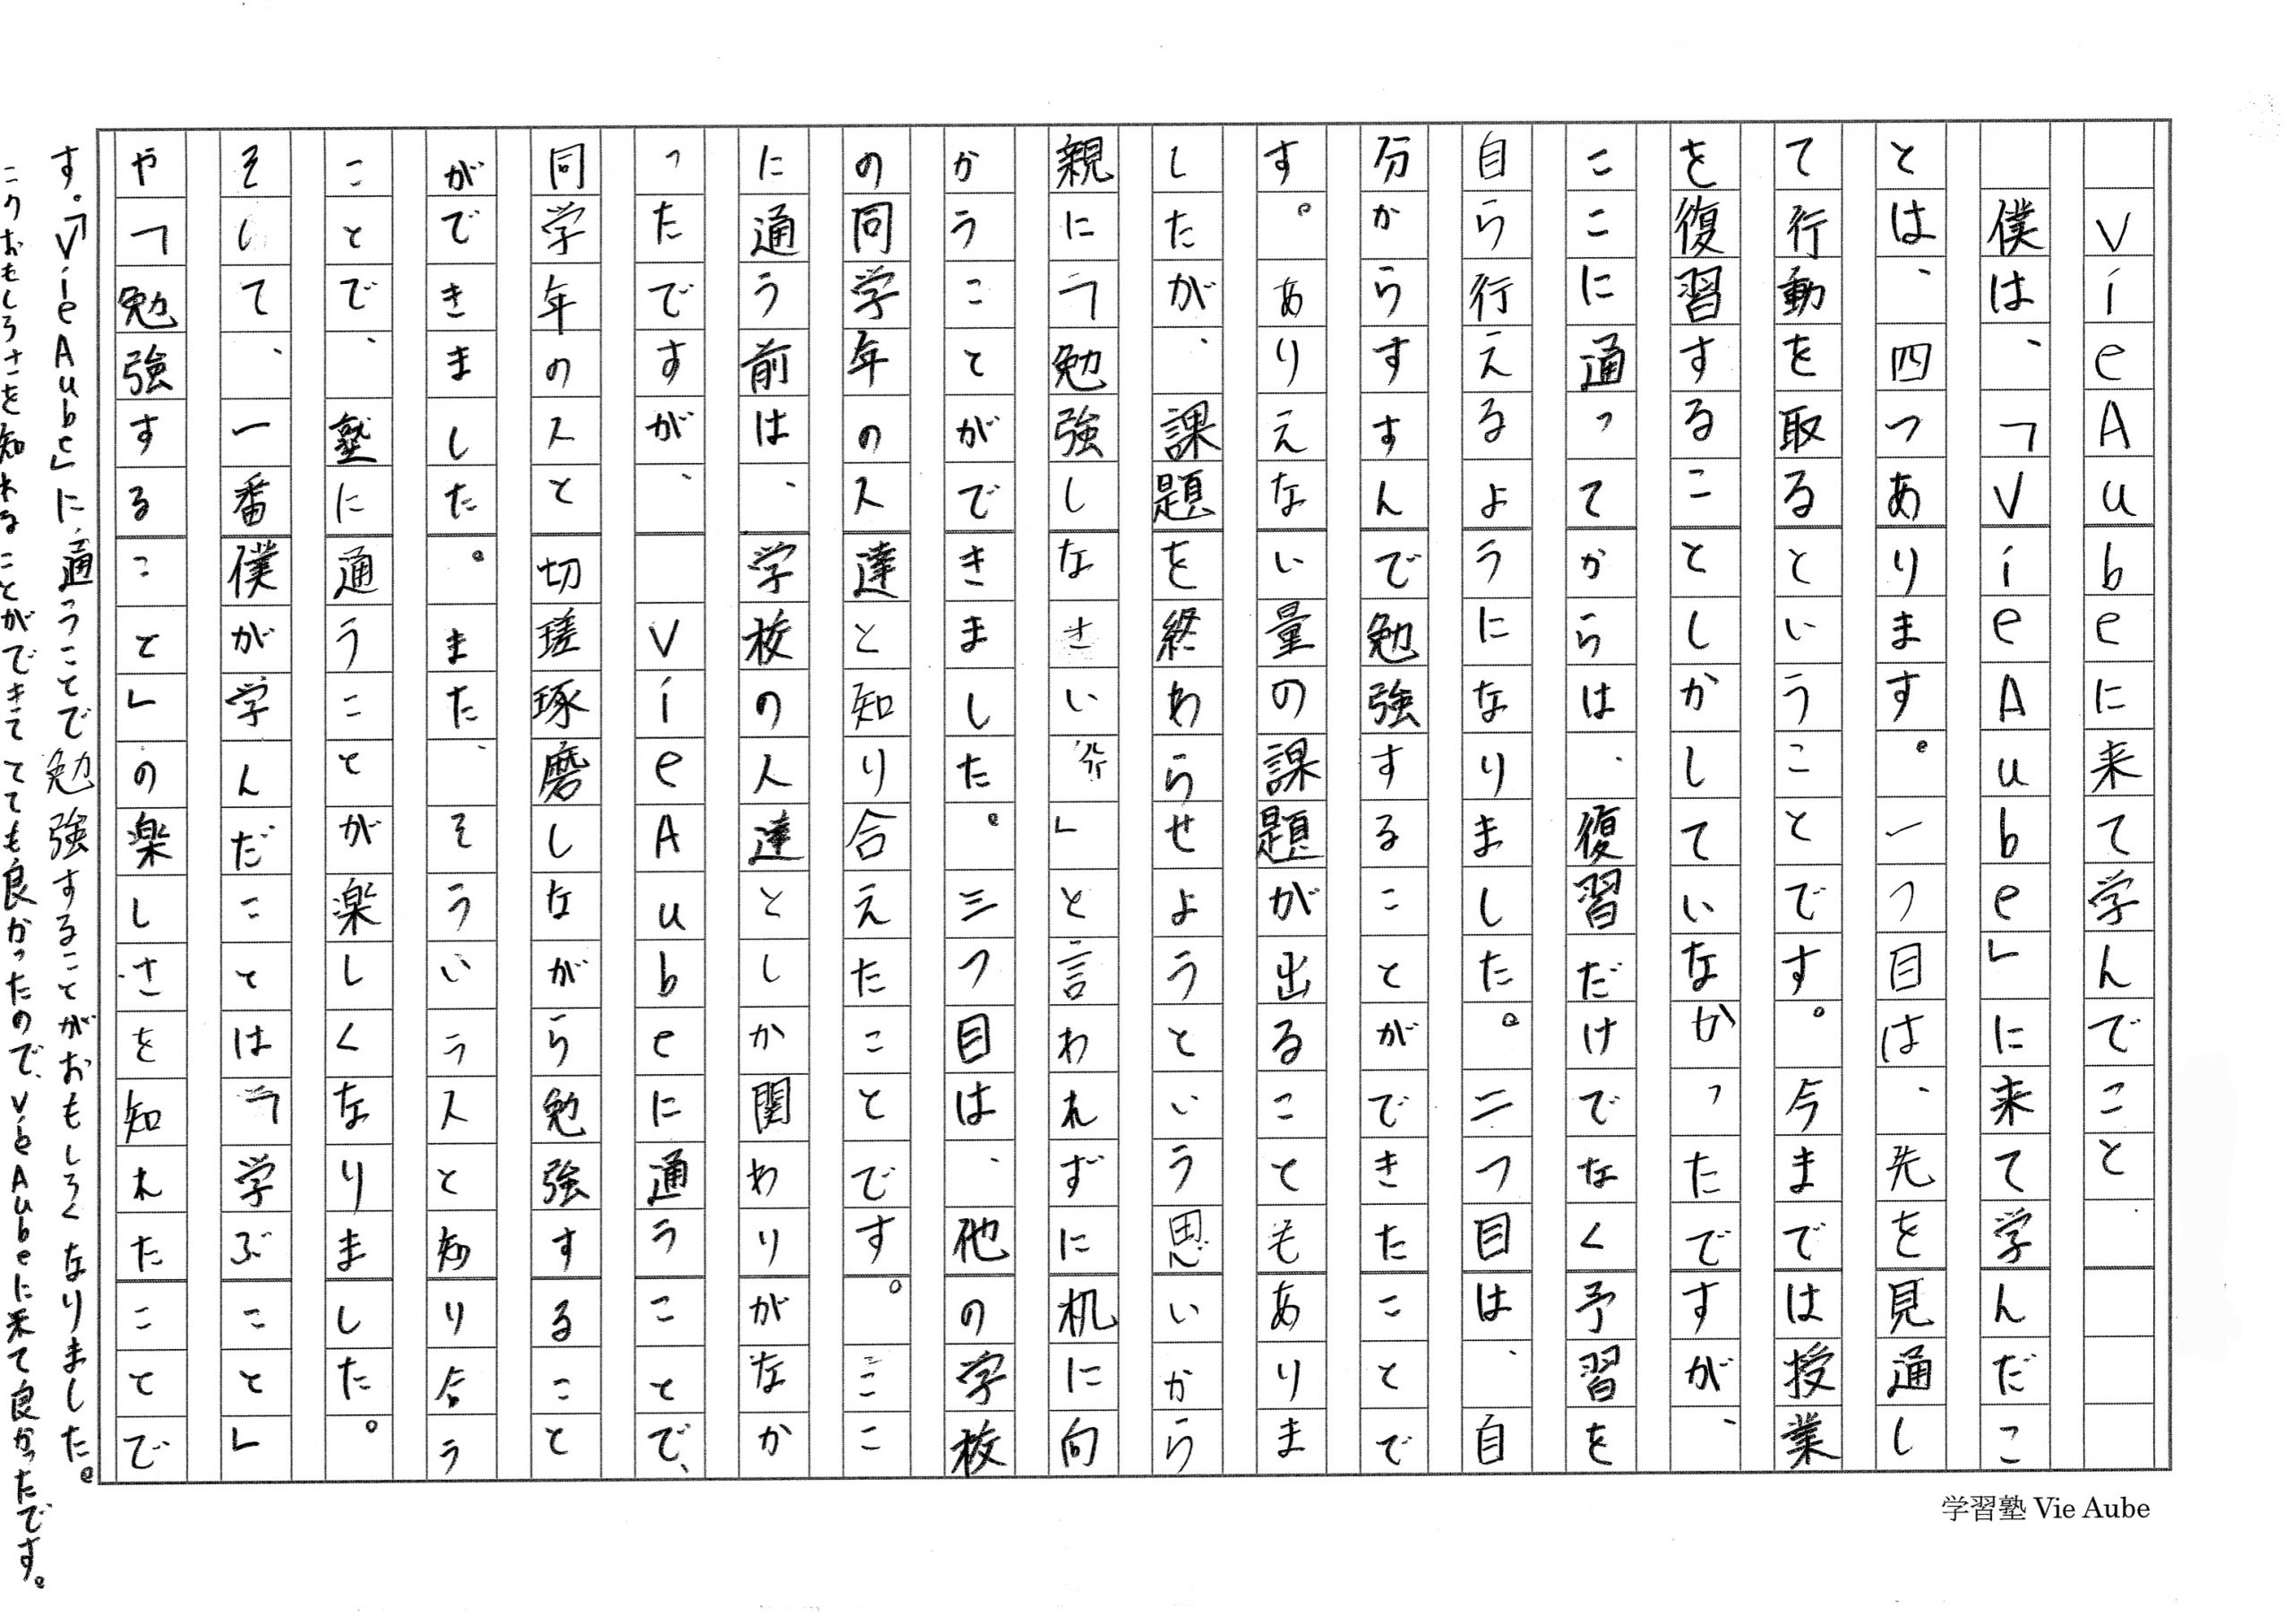 VieAubeに来て学んでこと
僕は、「VieAube」に来て学んだこ
とは、四つあります。一つ目は、先を見通し
て行動を取るということです。今までは授業
を復習することしかしていなかったですが、
ここに通ってからは、復習だけでなく予習を
自ら行えるようになりました。二つ目は、自
分からすすんで勉強することができたことで
す。ありえない量の課題が出ることもありま
したが、課題を終わらせようという思いから
親に「勉強しなさい」と言われずに机に向
かうことができました。三つ目は、他の学校
の同学年の人達と知り合えたことです。ここ
に通う前は、学校の人達としか関わりがなか
ったですが、VieAubeに通うことで、
同学年の人と切瑳琢磨しながら勉強すること
ができました。また、そういう人と知り合う
ことで、塾に通うことが楽しくなりました。
そして、一番僕が学んだことは「学ぶこと」
や「勉強すること」の楽しさを知れたことで
す。「VieAube」に、通うことで勉強することがおもしろくなりました。
このおもしろさを知れることができてとても良かったので、VieAubeに来て良かったです。
学習塾 Vie Aube